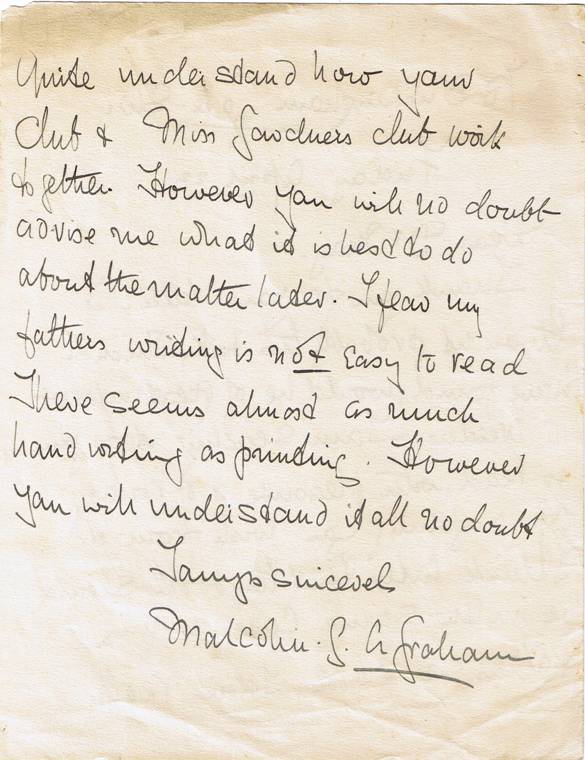 Quite understand how your
Club & Miss Gardners club work
together. However you will no doubt
advise me what it is best to do
about the matter later. I fear my
fathers writing is not easy to read
There seems almost as much
hand writing as printing. However
you will understand it all no doubt
Yours sincerely
Malcolm. G. A Graham